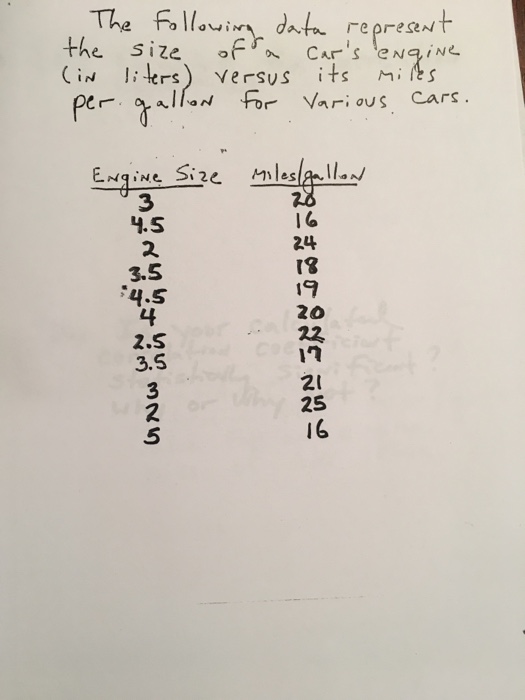 The following data represent
the size of a car's engine
(in liters) versus its miles
per gallon for various cars.
Engine Size Miles/gallon
3 20
4.5 16
2 24
3.5 18
4.5 19
4 20
2.5 22
3.5 17
3 21
2 25
5 16